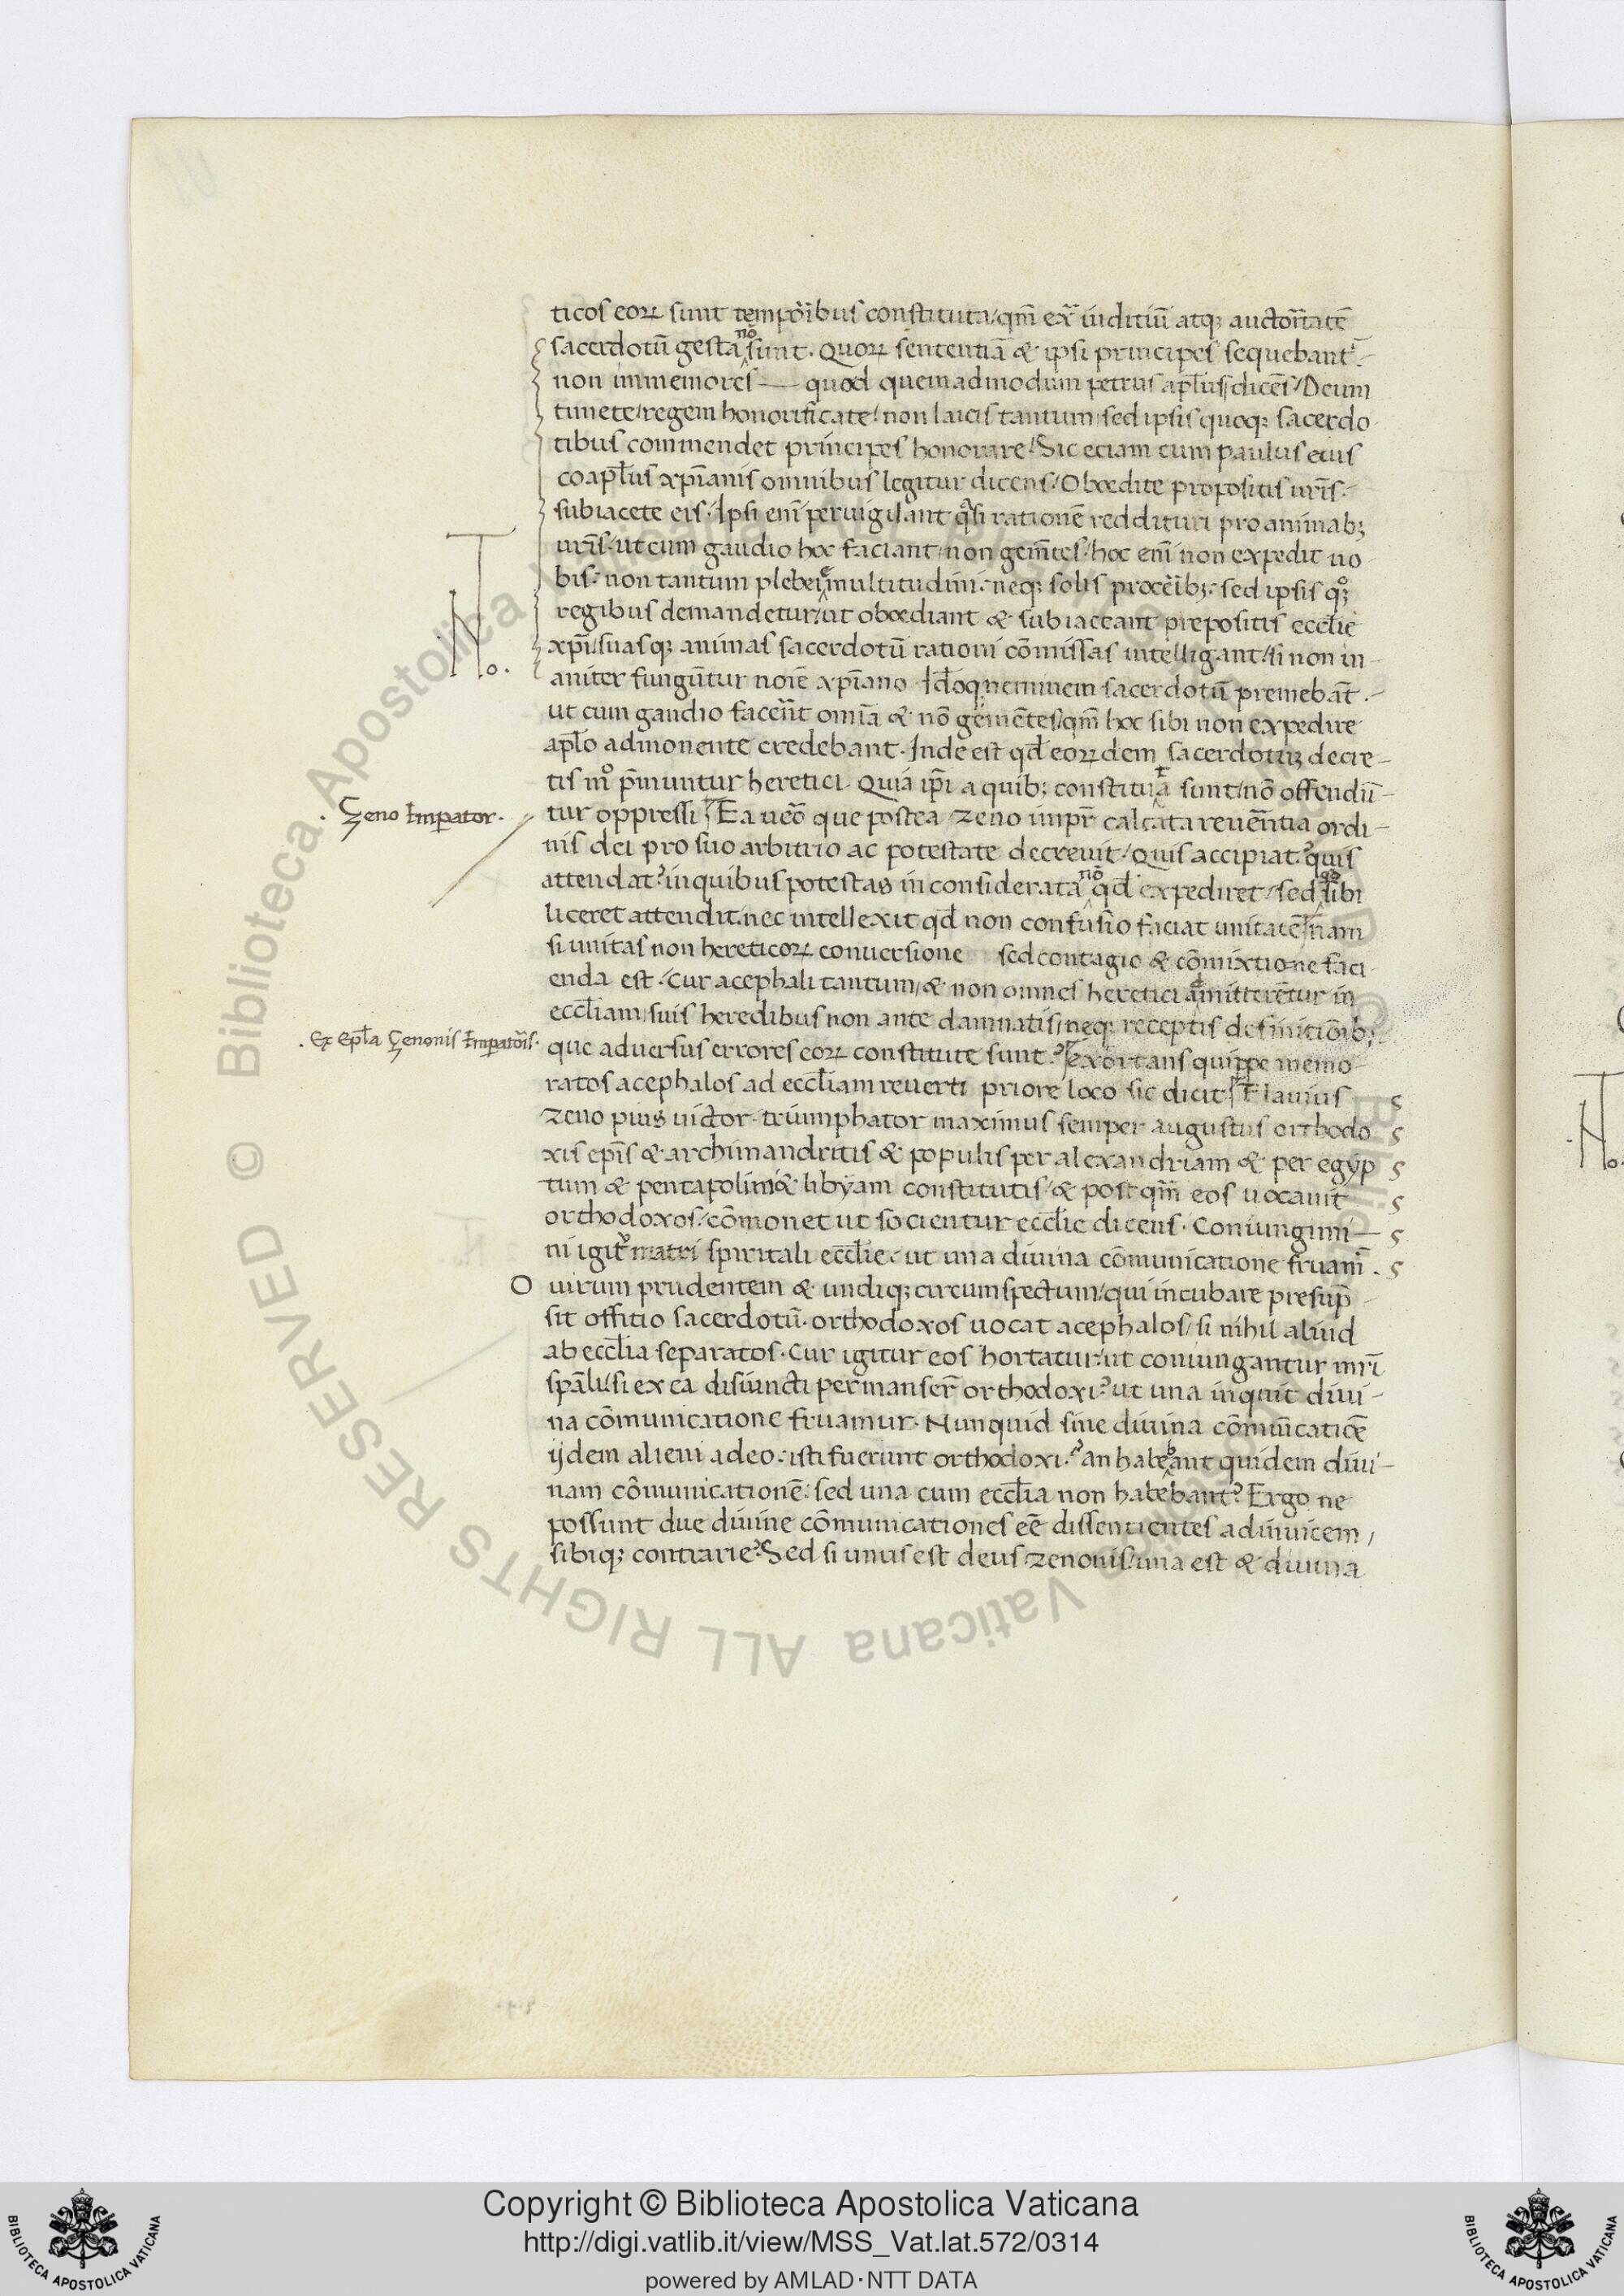 ticos eoꝝ sunt temporibus constituta / qm̄ extͣ iuditiū atqꝫ auctoritatē
sacerdotū gesta nō sunt . Quoꝝ sententiā & ipsi principes sequebant̄ . -
non immemores — quod quemadmodum petrus apl̄us dicēs / Deum
timete / regem honorificate / non laicis tantum / sed ipsis quoqꝫ sacerdo
tibus commendet principes honorare / Sic eciam cum paulus eius
coapl̄us xp̄ianis omnibus legitur dicens / Obœdite propositis ur̄is .
subiacete eis . Ipsi eni̅ peruigilant qͣsi rationē reddituri pro animabꝫ
ur̄is . ut cum gaudio hoc faciant / non gem̄tes / hoc eni̅ non expedit uo
bis : non tantum plebeie multitudini : neqꝫ solis procerībꝫ : sed ipsis qͦꝫ
regibus demandetur / ut obœdiant & subiaceant prepositis eccl̄ie
xp̄i / suasqꝫ animas sacerdotū rationi cōmissas intelligant / si non in -
aniter fungūtur noīe xp̄iano . Id̄oqꝫ neminem sacerdotū premebāt . -
ut cum gaudio facerēt omīa & nō gementes / qm̄ hoc sibi non expedire
apl̄o admonente credebant . Inde est qd̄ eoꝝdem sacerdotuꝫ decre -
tis mͦ p̄muntur heretici . Quia ip̄i a quibꝫ constituta sunt / nō offendū -
. Zeno Imꝑator .
tur oppressi . Ea uēo que postea / Zeno impr̄ calcata reuerentia ordi -
nis dei pro suo arbitrio ac potestate decreuit / Quis accipiat ? quis
attendat ? in quibus potestas inconsiderata nō qd̄ expediret / sed sibi
liceret attendit . nec intellexit qd̄ non confusio faciat unitatē / nam
si unitas non hereticoꝝ conuersione sed contagio & cōmixtione faci
enda est . Cur acephali tantum / & non omnes heretici amitterētur in
eccl̄iam / suis heredibus non ante damnatis / neqꝫ receptis definitiōibꝫ
. Ex Epl̄a Zenonis Imꝑatōis .
que aduersus errores eoꝝ constitute sunt . ? exortans quippe memo
ratos acephalos ad eccl̄iam reuerti priore loco sic dicit / Flauius
Zeno pius uictor . triumphator maximus semper augustus orthodo
xis ep̄is & archimandritis & populis per alexandriam & per egyp
tum & pentapolim & libyam constitutis / & post qm̄ eos uocauit
orthodoxos / cōmonet ut socientur eccl̄ie dicens . Coniungimi —
ni igit̄ matri spiritali eccl̄ie : ut una diuina cōmunicatione fruam̄ .
O uirum prudentem & undiqꝫ circumspectum / qui incubare presūp -
sit offitio sacerdotū . orthodoxos uocat acephalos / si nihil aliud
ab eccl̄ia separatos . Cur igitur eos hortatur / ut coniungantur mr̄i
sp̄ali / si ex ea disiuncti permanser̄ orthodoxi ? ut una inquit diui -
na cōmunicatione fruamur . Nunquid sine diuina cōmunicatiōe
ijdem alieni adeo : isti fuerunt orthodoxi . ? an habebant quidem diui -
nam cōmunicationē : sed una cum eccl̄ia non habebant ? Ergo ne
possunt due diuine cōmunicationes eē dissentientes adinuicem /
sibiqꝫ contrarie ? Sed si unus est deus / zenonis / una est & diuina
© Biblioteca Apostolica Vaticana ALL RIGHTS RESERVED
Copyright © Biblioteca Apostolica Vaticana
http://digi.vatlib.it/view/MSS_Vat.lat.572/0314
powered by AMLAD·NTT DATA
BIBLIOTECA APOSTOLICA VATICANA
BIBLIOTECA APOSTOLICA VATICANA